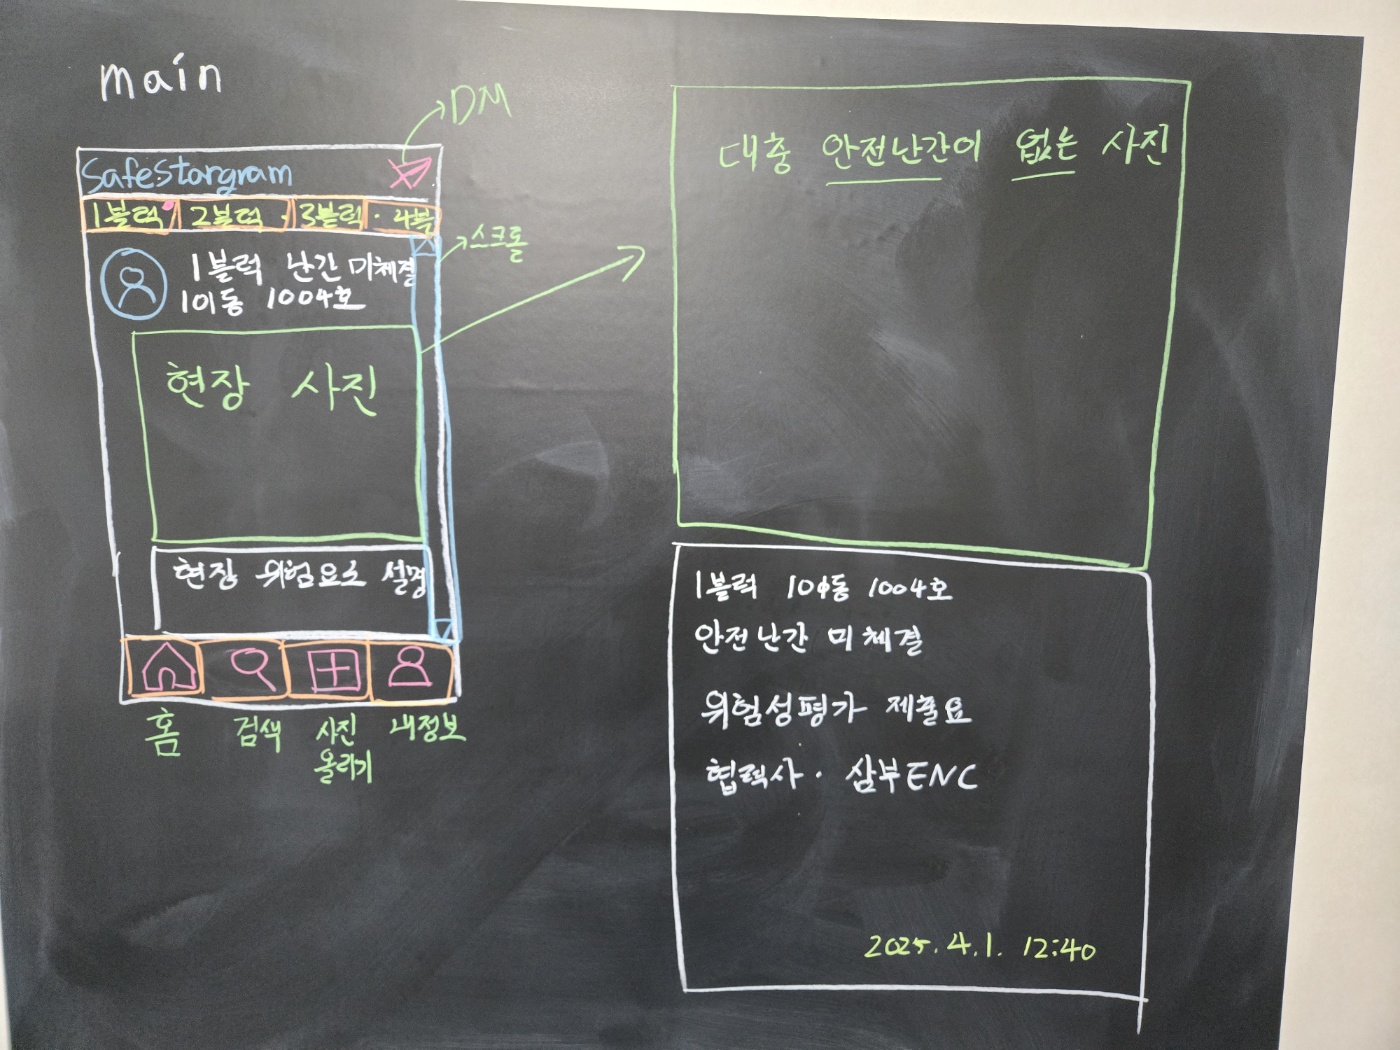 main
DM
Safestargram
1블럭 2블럭 · 3블럭 · 4블
스크롤
1블럭 난간 미체결
101동 1004호
현장 사진
현장 위험요소 설명
홈 검색 사진 올리기 내정보
대충 안전난간이 없는 사진
1블럭 101동 1004호
안전난간 미체결
위험성평가 제출요
협력사 · 삼부ENC
2025.4.1. 12:40